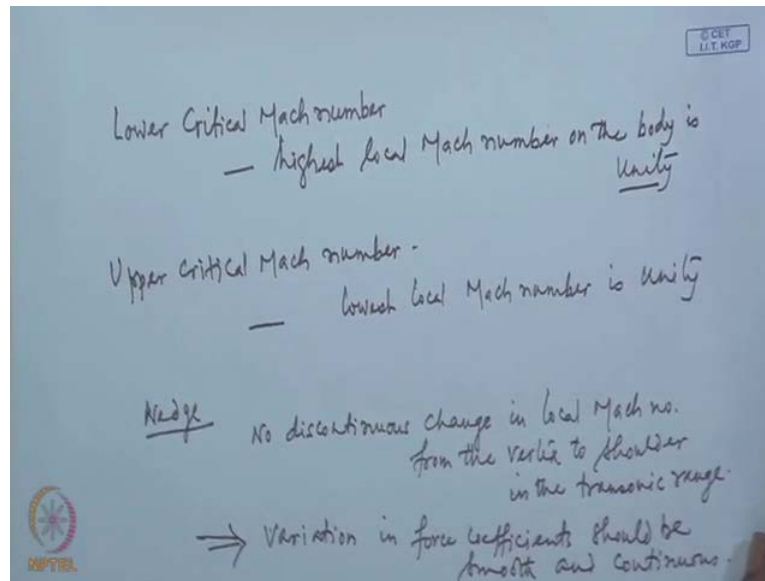 © CET
I.I.T. KGP
Lower Critical Mach number
— highest local Mach number on the body is
Unity
Upper critical Mach number.
— lowest local Mach number is unity
Wedge No discontinuous change in local Mach no.
from the vertex to shoulder
in the transonic range.
⇒ Variation in force coefficients should be
smooth and continuous.
NPTEL